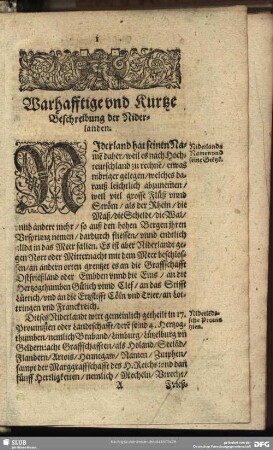 1
Warhafftige vnd Kurtze
Beschreibung der Nider-
landen.
NIderland hat seinen Na-
me daher / weil es nach Hoch-
teutschland zu rechnē / etwas
nidriger gelegen / welches da-
rauß leichtlich abzunemen /
weil viel grosse Flüß vnnd
Ström / als der Rhein / die
Maß / die Schelde / die Wal /
vnnd andere mehr / so auß den hohen Bergen jhren
Vrsprung nemen / dardurch fliessen / vnnd endtlich
allda in das Meer fallen. Es ist aber Niderland ge-
gen Nort oder Mitternacht mit dem Meer beschlos-
sen / an andern orten grentzet es an die Graffschafft
Ostfrießland oder Embden vnnd die Ems / an die
Hertzogthumben Gülich vnnd Clef / an das Stifft
Lüttich / vnd an die Ertzstifft Cöln vnd Trier / an Lot-
tringen vnd Franckreich.
Niderlands
Name vnnd
seine Grētz.
Dieses Niderlandt wirt gemeinlich getheilt in 17.
Prouintzen oder Landschafft / derē seind 4. Hertzog-
thumben / nemlich Braband / Limburg / Lützelburg vñ
Geldern: acht Graffschafften / als Holand / Seelād /
Flandern / Artois / Hennegaw / Namen / Zutphen /
sampt der Marggraffschafft deß H. Reichs: vnd dañ
fünff Herrligkeiten / nemlich / Mecheln / Vtrecht /
Niderlän-
sche Prouin-
tzen.
A
Frieß-
SLUB
DFG